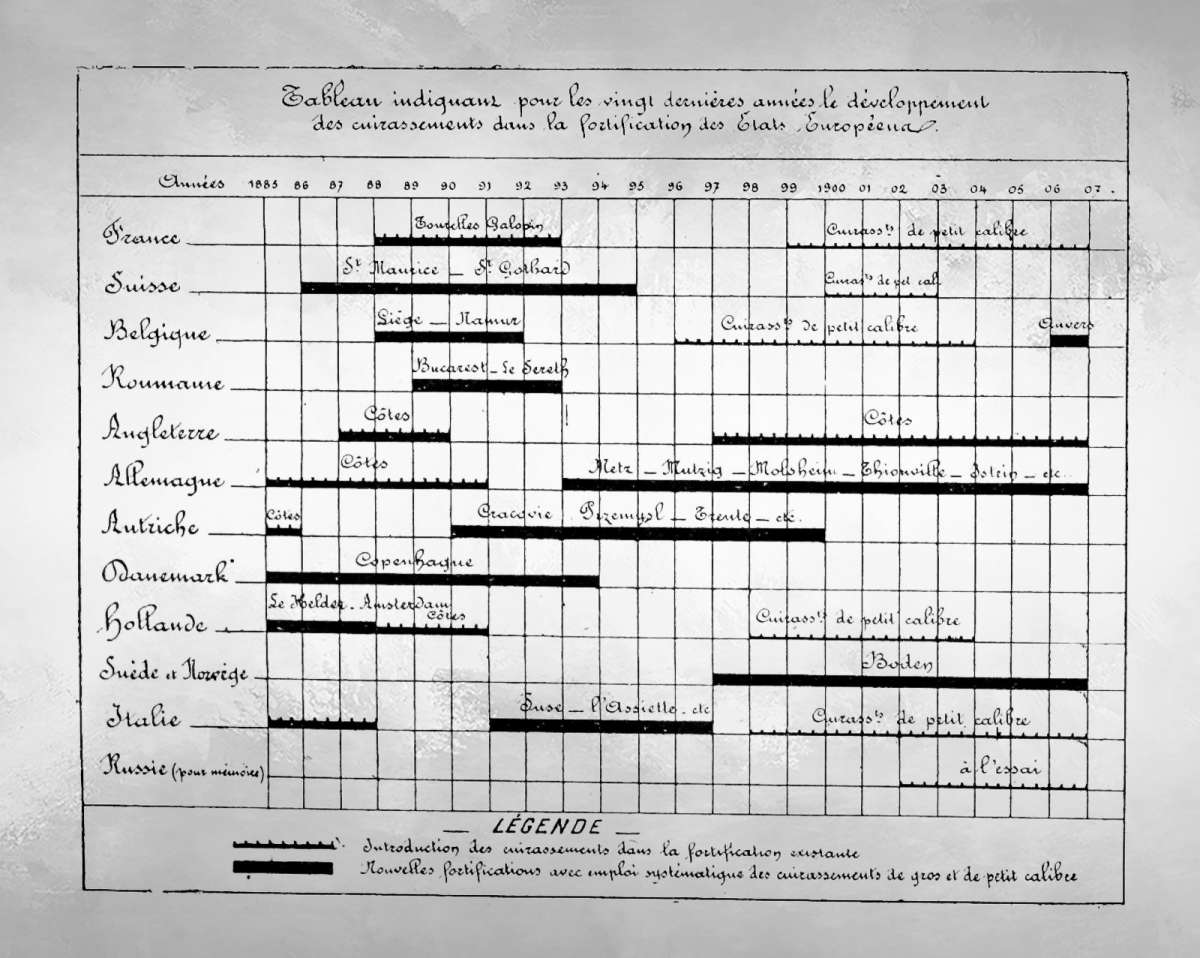 Tableau indiquant pour les vingt dernières années le développement
des cuirassements dans la fortification des États Européens.
Années 1885 86 87 88 89 90 91 92 93 94 95 96 97 98 99 1900 01 02 03 04 05 06 07.
France Tourelles Galopin Cuirassts de petit calibre
Suisse St Maurice — St Gothard Cuirassts de pet cal.
Belgique Liège — Namur Cuirassts de petit calibre Anvers
Roumanie Bucarest - Le Sereth
Angleterre Côtes Côtes
Allemagne Côtes Metz — Mutzig — Molsheim — Thionville — Istein — etc..
Autriche Côtes Cracovie. Przemysl — Trente — etc.
Danemark Copenhague
Hollande Le Helder - Amsterdam Côtes Cuirassts de petit calibre
Suède et Norvège Boden
Italie Suse — l'Assiette - etc Cuirassts de petit calibre
Russie (pour mémoire) à l'essai
— LÉGENDE —
Introduction des cuirassements dans la fortification existante
Nouvelles fortifications avec emploi systématique des cuirassements de gros et de petit calibre